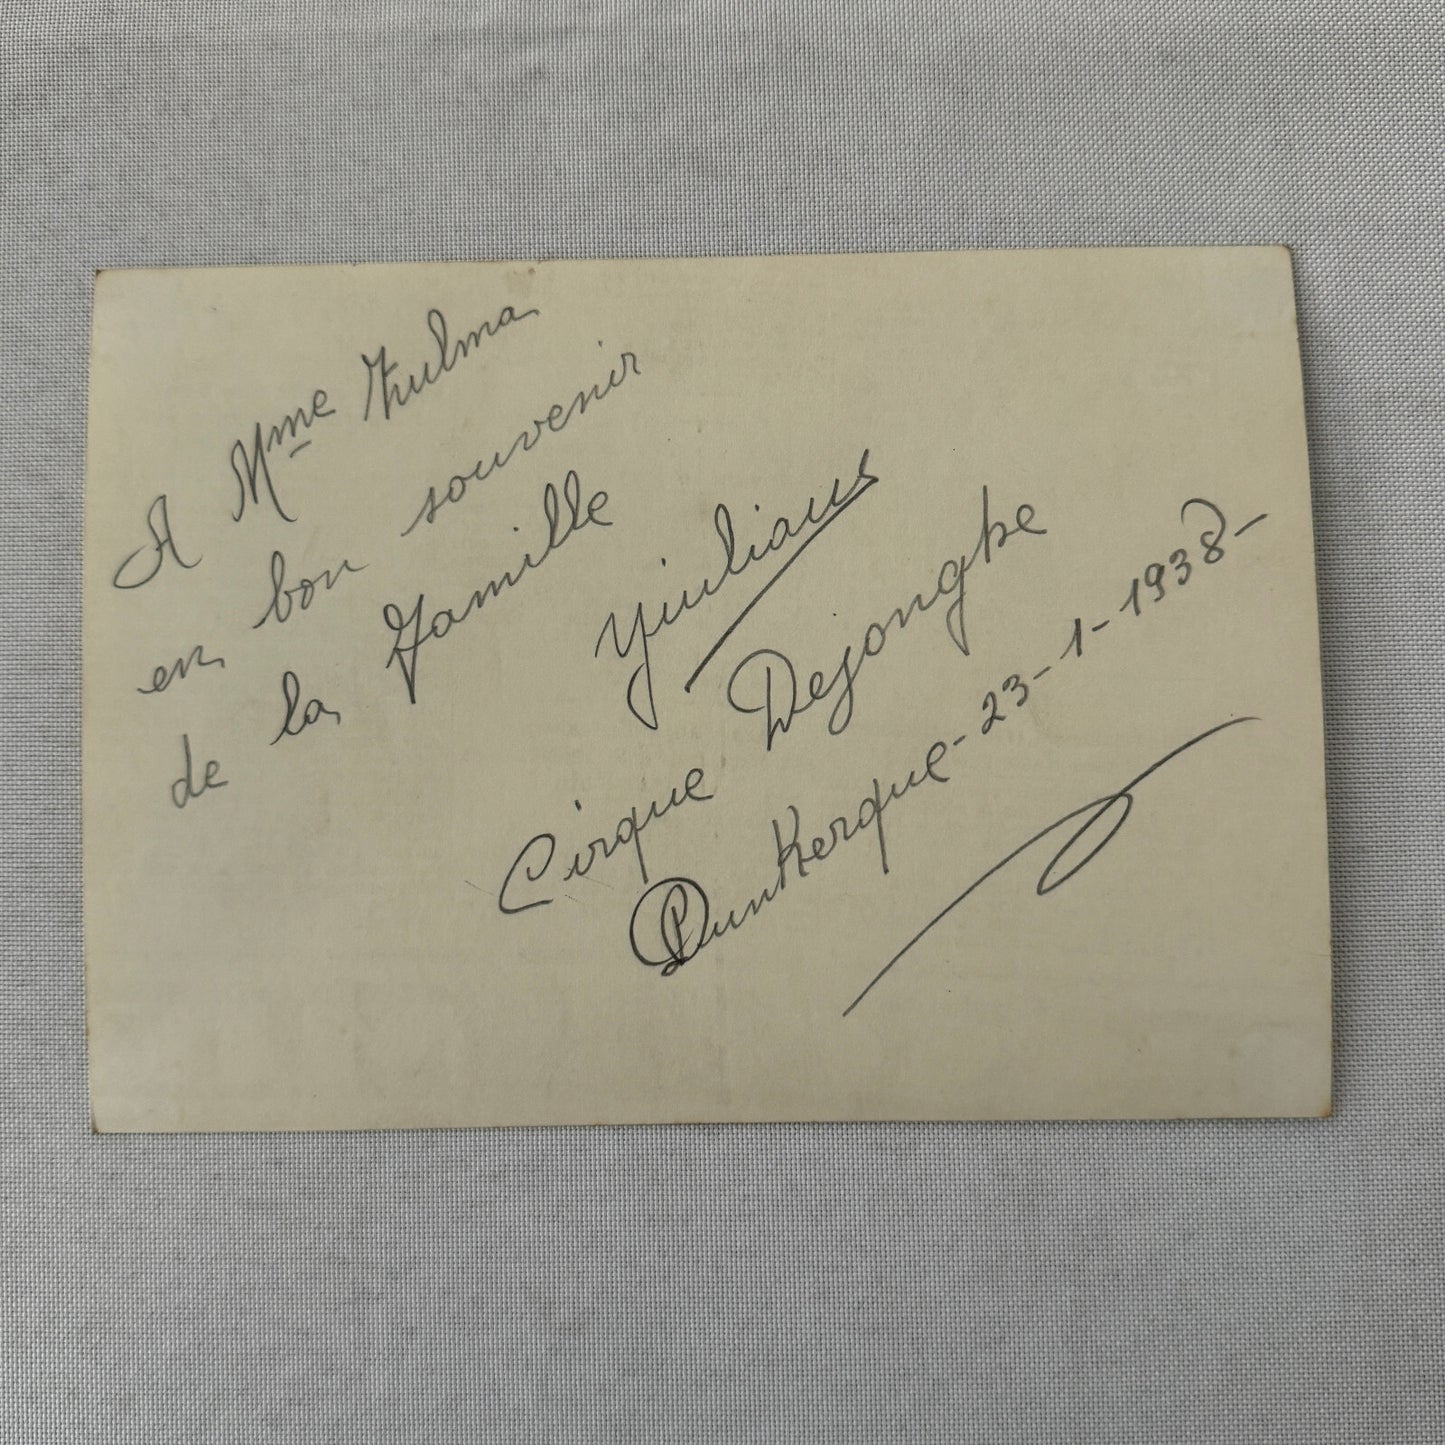 A Mme Thulma
en bon souvenir
de la Famille
Yiulians
Cirque Dejonghe
Dunkerque - 23 - 1 - 1938 -